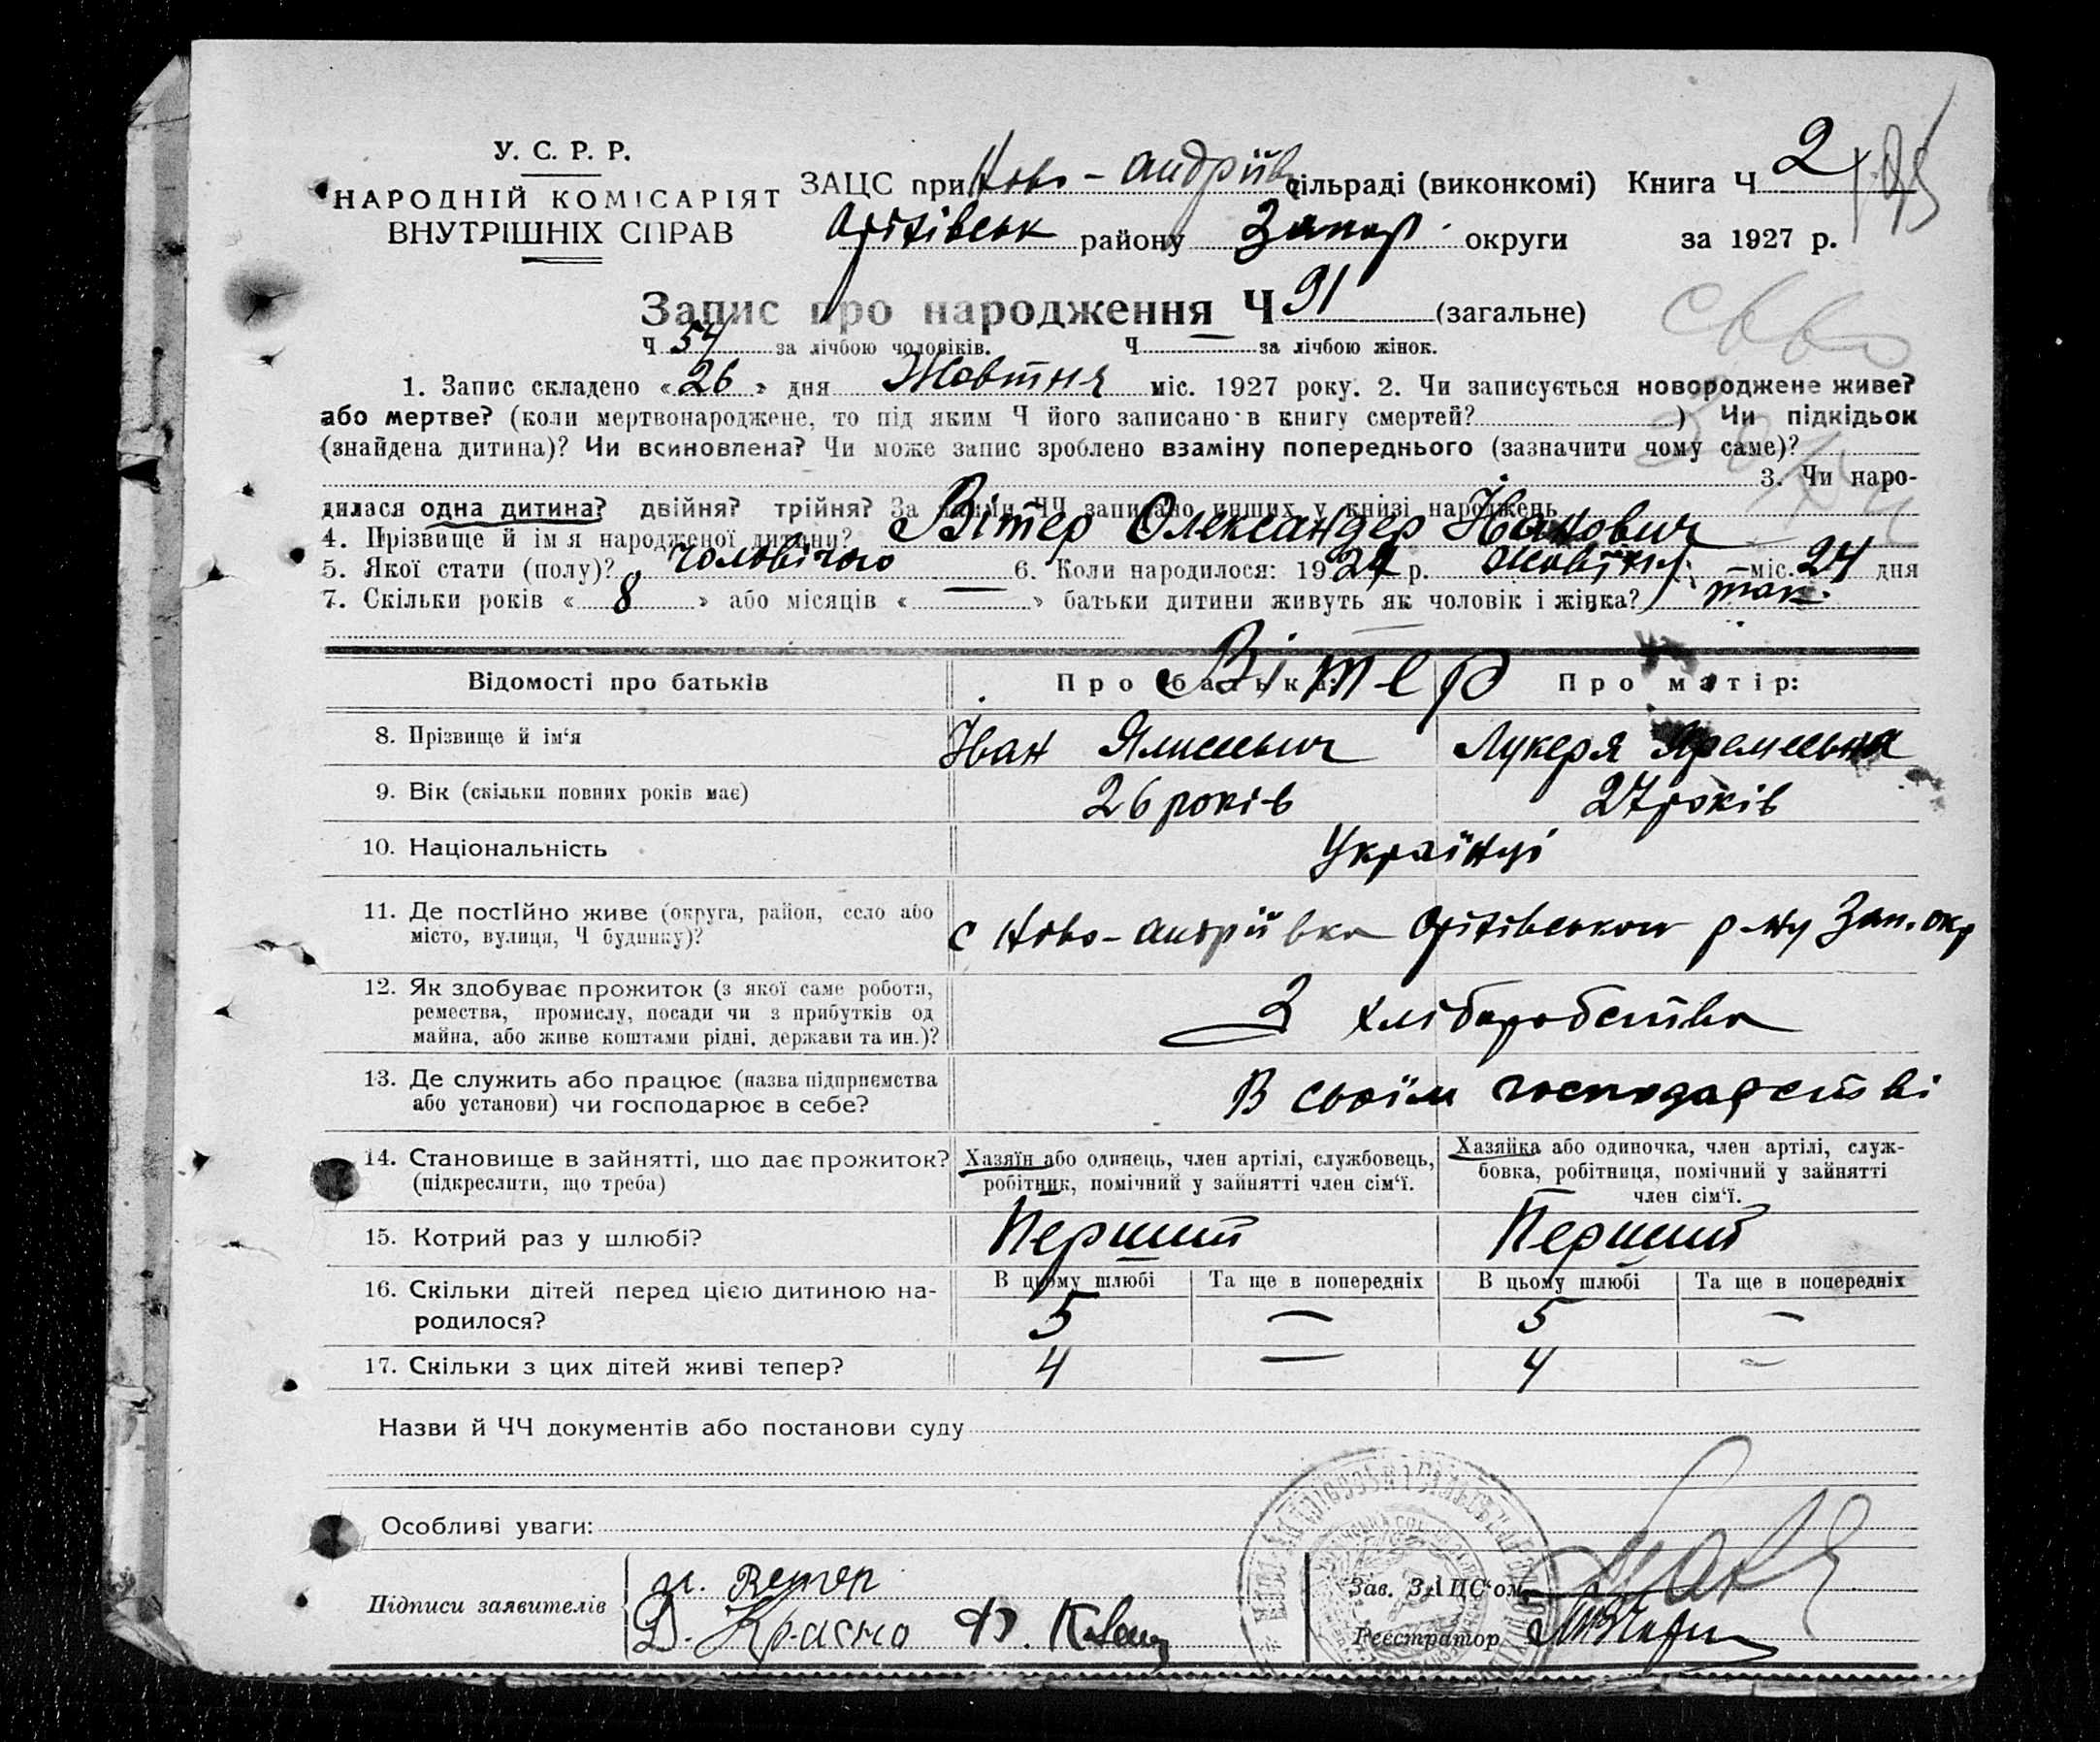 У. С. Р. Р.
НАРОДНІЙ КОМІСАРІЯТ
ВНУТРІШНІХ СПРАВ
ЗАЦС при Ново-Андріїв сільраді (виконкомі) Книга Ч 2
Оріхівськ району Запор. округи за 1927 р.
Запис про народження Ч 91 (загальне)
Ч 54 за лічбою чоловіків. Ч — за лічбою жінок.
1. Запис складено «26» дня Жовтня міс. 1927 року. 2. Чи записується новороджене живе?
або мертве? (коли мертвонароджене, то під яким Ч його записано в книгу смертей? ) Чи підкідьок
(знайдена дитина)? Чи всиновлена? Чи може запис зроблено взаміну попереднього (зазначити чому саме)?
3. Чи наро-
дилася одна дитина? двійня? трійня? За якими ЧЧ записано инших у книзі народжень
4. Прізвище й ім'я народженої дитини? Вітер Олександер Іванович
5. Якої стати (полу)? чоловічого 6. Коли народилося: 1927 р. жовтня міс. 24 дня
7. Скільки років «8» або місяців «—» батьки дитини живуть як чоловік і жінка? так.
Відомості про батьків Про батька: Вітер Про матір:
8. Прізвище й ім'я Іван Лукеря
9. Вік (скільки повних років має) 26 років 27 років
10. Національність Українці
11. Де постійно живе (округа, район, село або
місто, вулиця, Ч будинку)? с Ново-Андріївка Оріхівського р-ну Зап. окр
12. Як здобуває прожиток (з якої саме роботи,
ремества, промислу, посади чи з прибутків од
майна, або живе коштами рідні, держави та ин.)? З хліборобства
13. Де служить або працює (назва підприємства
або установи) чи господарює в себе? В своїм господарстві
14. Становище в зайнятті, що дає прожиток?
(підкреслити, що треба)
Хазяїн або одинець, член артілі, службовець,
робітник, помічний у зайнятті член сім'ї.
Хазяйка або одиночка, член артілі, служ-
бовка, робітниця, помічний у зайнятті
член сім'ї.
15. Котрий раз у шлюбі? Перший Перший
В цьому шлюбі Та ще в попередніх В цьому шлюбі Та ще в попередніх
16. Скільки дітей перед цією дитиною на-
родилося? 5 — 5 —
17. Скільки з цих дітей живі тепер? 4 — 4 —
Назви й ЧЧ документів або постанови суду
Особливі уваги:
Підписи заявителів
Ветер
Д. Красно
Зав. ЗАЦС'ом
Реєстратор